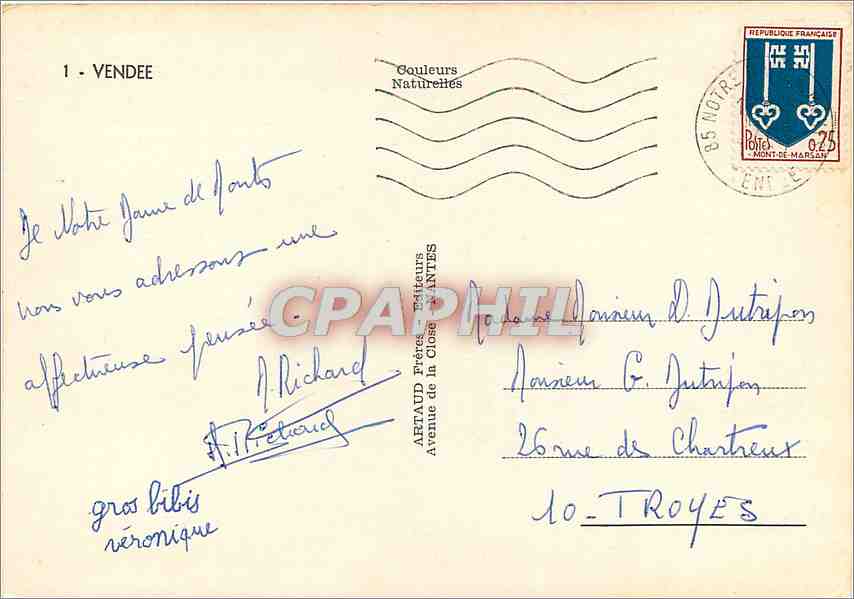 1 - VENDEE
Couleurs
Naturelles
REPUBLIQUE FRANÇAISE
POSTES 0,25
MONT-DE-MARSAN
85 NOTRE
De Notre Dame de Monts
nous vous adressons une
affectueuse pensée.
Richard
A. Richard
gros bibis
véronique
ARTAUD Frères Editeurs
Avenue de la Close NANTES
CPAPHIL
Madame Monsieur D. Dutripon
Monsieur G. Dutripon
26 rue des Chartreux
10 - TROYES